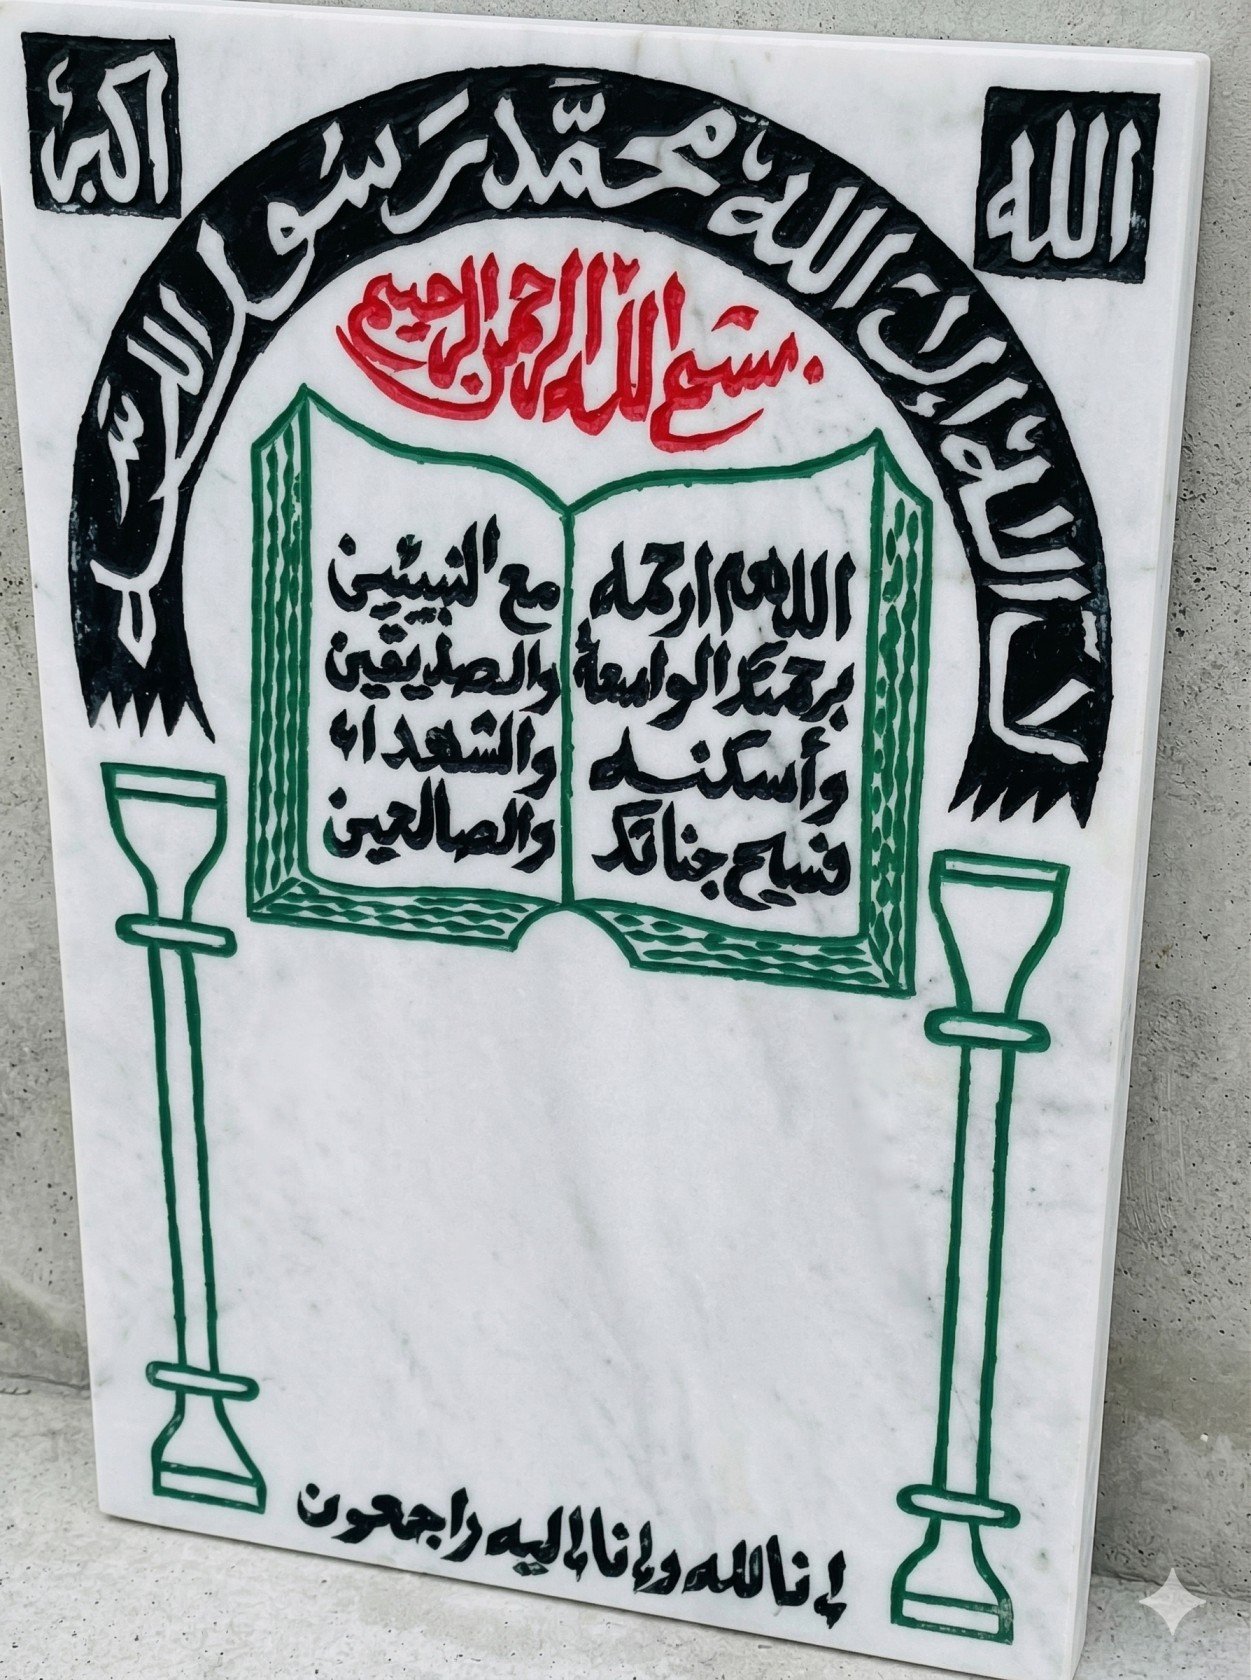 الله
أكبر
لا إله إلا الله محمد رسول الله
بسم الله الرحمن الرحيم
اللهم ارحمه
برحمتك الواسعة
وأسكنه
فسيح جناتك
مع النبيئين
والصديقين
والشهداء
والصالحين
إنا لله وإنا إليه راجعون